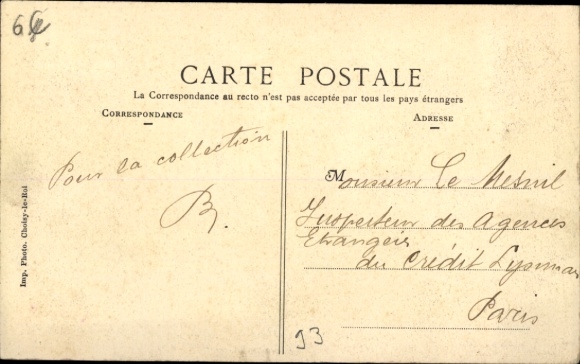 CARTE POSTALE
La Correspondance au recto n'est pas acceptée par tous les pays étrangers
CORRESPONDANCE
ADRESSE
Pour sa collection
B.
Monsieur Le Mesnil
Inspecteur des Agences
Etrangères
du Crédit Lyonnais
Paris
93
Imp. Photo. Choisy-le-Roi